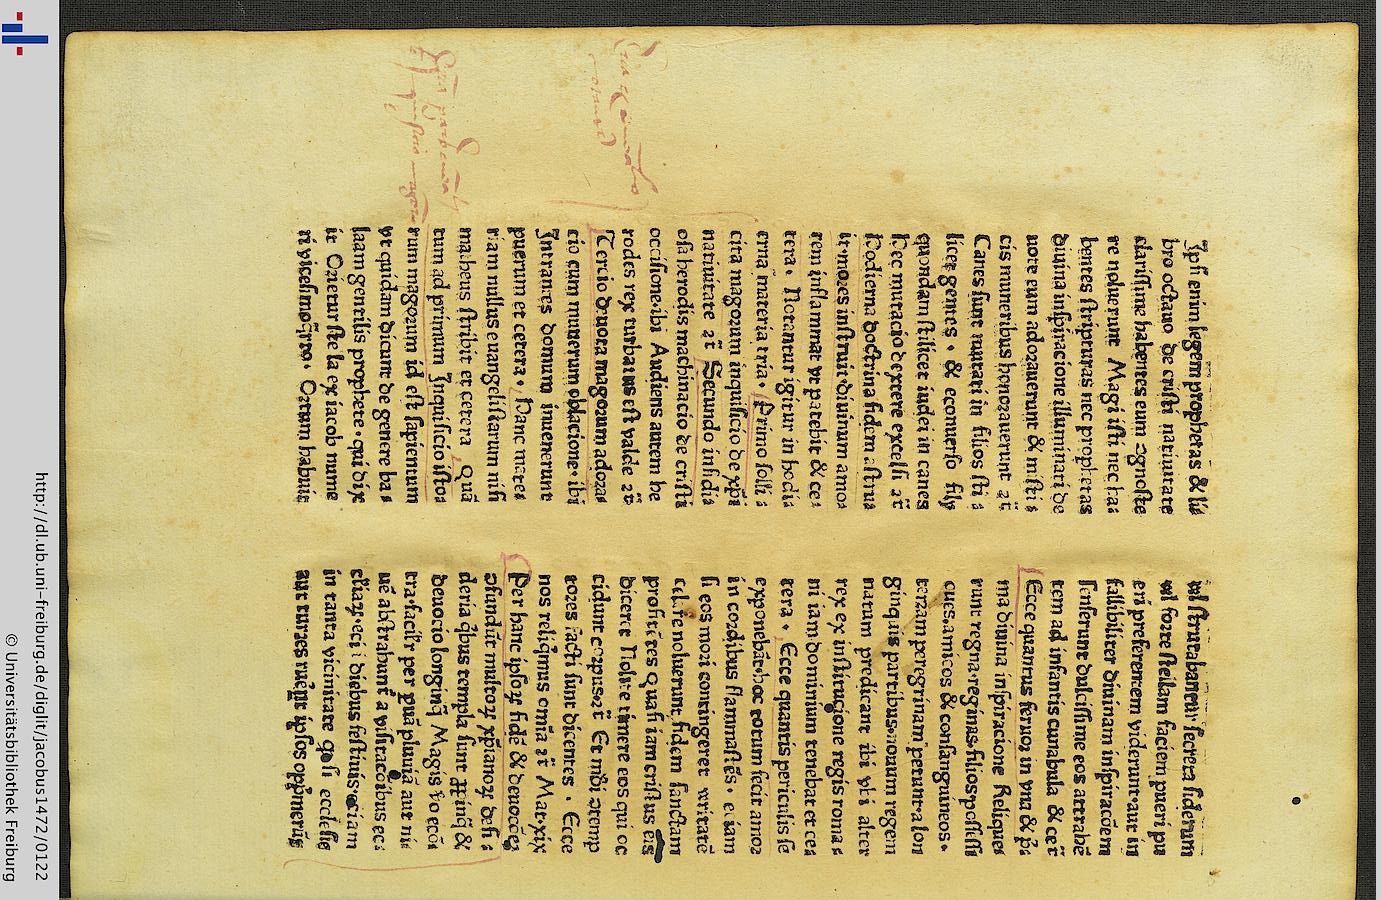 Ipsi enim legem prophetas & li⸗
bro octauo de cristi natiuitate
clarissime habentes eum ↄgnosce
re noluerunt Magi isti nec ha⸗
bentes scripturas nec prophetas
diuina inspiracione illuminati de
note eum adorauerunt & misti⸗
cis muneribus honorauerunt ⁊c̄
Canes sunt mutati in filios sci⸗
licet gentes · & econuerso filij
quondam scilicet iudei in canes
Hec mutacio dextere excelsi ⁊c̄
Hodierna doctrina fidem astrua
it·mores instruit·diuinum amo⸗
rem inflammat vt patebit & ce⸗
tera · Notantur igitur in hodi⸗
erna materia tria · Primo solli⸗
cita magorum inquisicio de xp̄i
natiuitate ⁊c̄ Secundo insidi⸗
osa herodis machinacio de cristi
occisione·ibi Audiens autem he
rodes rex turbatus est valde ⁊c̄
Tercio deuota magorum adora⸗
cio cum munerum oblacione·ibi
Intrantes domum inuenerunt
puerum et cetera · Hanc mate⸗
riam nullus euangelistarum nisi
matheus scribit et cetera Quā
tum ad primum Inquisicio isto⸗
rum magorum id est sapientum
vt quidam dicunt de genere ba⸗
laam gentilis prophete·qui dix
it Orietur stella ex iacob nume
ri vicesimoq̄rto · Ortum habuit
vel scrutabantur secreta siderum
vel forte stellam faciem pueri pu
eri preferentem viderunt·aut in
fallibiliter diuinam inspiracōem
senserunt dulcissime eos attrahē
tem ad infantis cunabula & cet̄
Ecce quantus feruor in vna & p̄
ma diuina inspiracione Relique⸗
runt regna·reginas·filios·possessi
ones·amicos & consanguineos·
terram peregrinam petunt·a lon
ginquis partibus·nouum regem
natum predicant ibi vbi alter
rex ex institucione regis roma⸗
ni iam dominium tenebat et ce⸗
tera · Ecce quantis periculis se
exponebāt·hoc totum fecit amor
in cordibus flammascēs · etiam
si eos mori contingeret veritatē
celare noluerunt fidem sanctam
profitētes quasi iam cristus eis
diceret Nolite timere eos qui oc
cidunt corpus·⁊c̄ Et mōi ↄtemp
tores facti sunt dicentes · Ecce
nos reliq̄mus omnia ⁊c̄ Mat·xix
Per hanc ipsoꝝ fidē & deuocōeꝫ
ↄfundūt multoꝝ xp̄ianoꝝ desi⸗
deria q̄bus templa sunt
deuocio longinq̄ Magis
tra facilr per puā pluuiā aut ni⸗
uē abstrahunt a visitacōibus ec⸗
cliaꝝ·eci i diebus festiuis·eciam
in tanta vicinitate q̄si ecclesie
aut turres ipsos opp̄meret